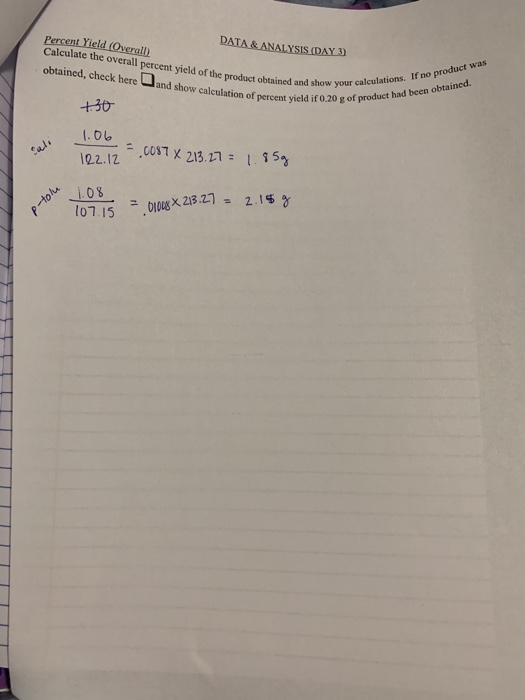 DATA & ANALYSIS (DAY 3)
Percent Yield (Overall)
Calculate the overall percent yield of the product obtained and show your calculations. If no product was
obtained, check here □ and show calculation of percent yield if 0.20 g of product had been obtained.
sal. 1.06 / 122.12 = .0087 X 213.27 = 1.85g
p-tolu 1.08 / 107.15 = .01008 X 213.27 = 2.15 g